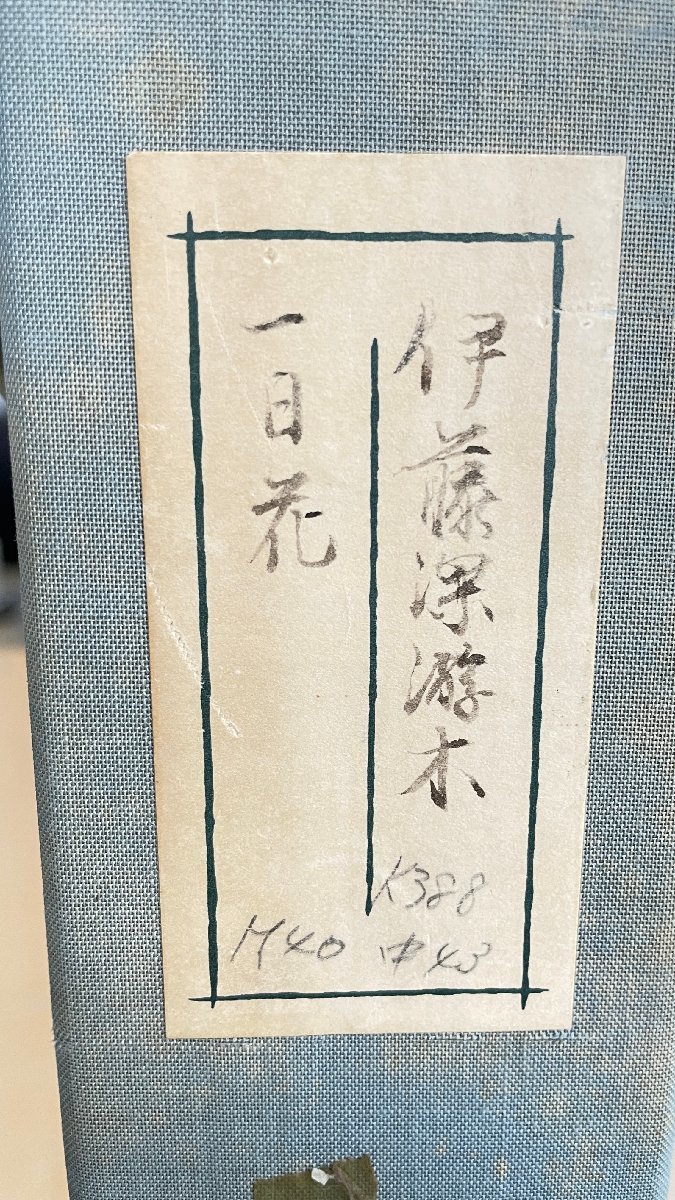 伊藤深游木
一日花
K388
M40
中43